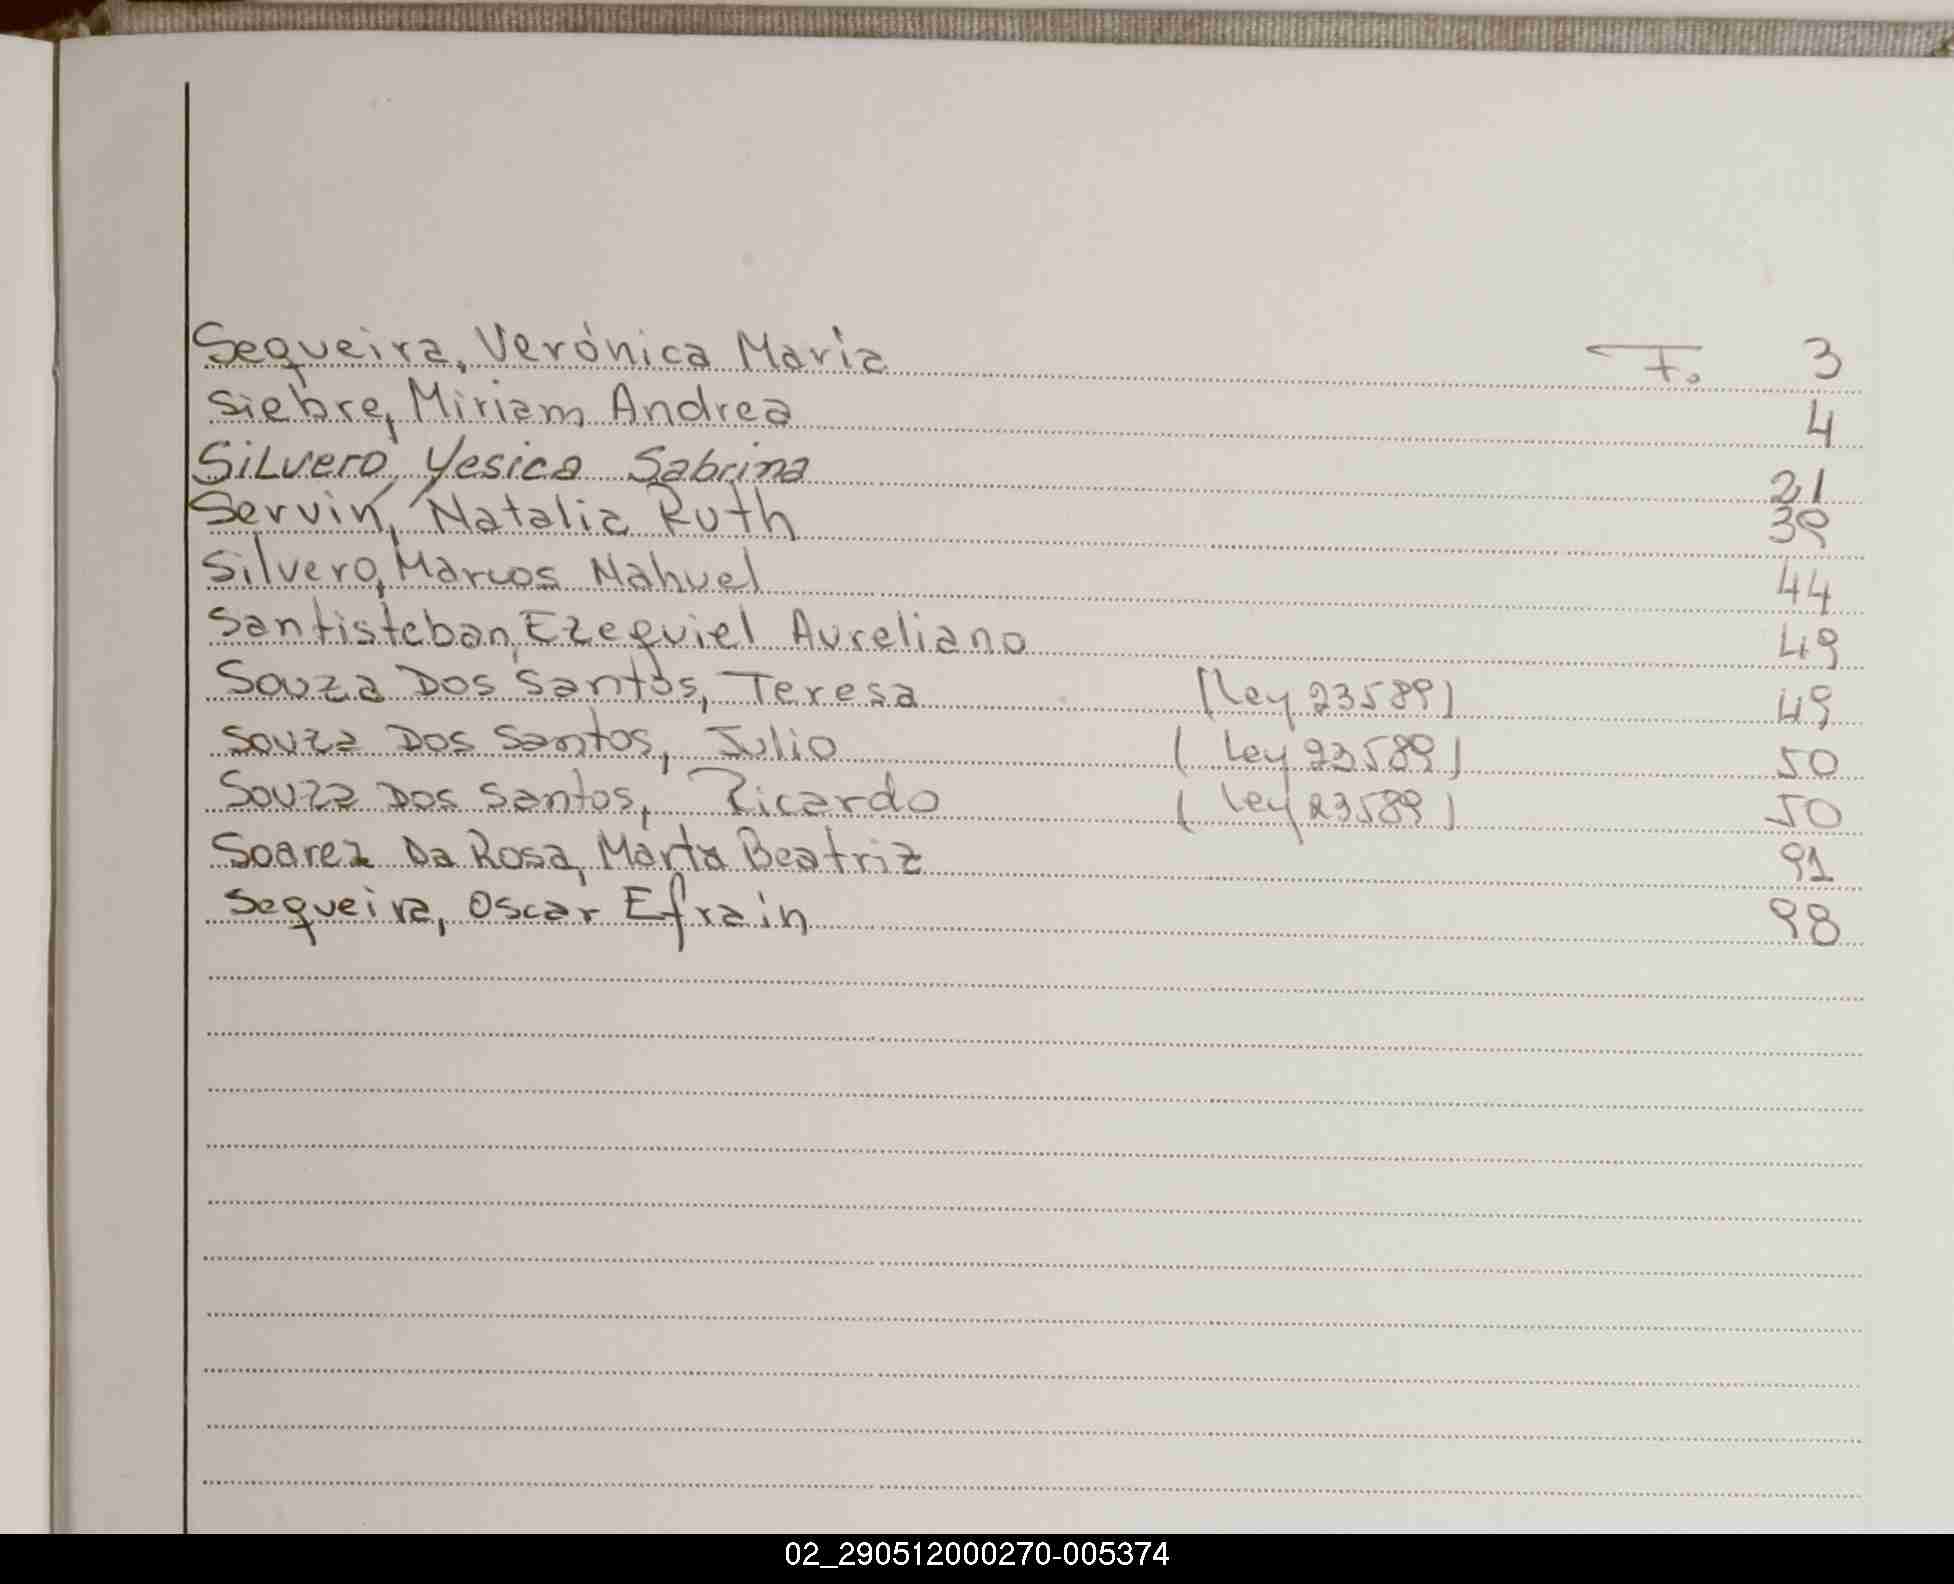 Sequeira, Verónica Maria F. 3
Siebre, Miriam Andrea 4
Silvero, Yesica Sabrina 21
Servín, Natalia Ruth 39
Silvero, Marcos Nahuel 44
Santisteban, Ezequiel Aureliano 49
Souza Dos Santos, Teresa (Ley 23589) 49
Souza Dos Santos, Julio (Ley 23589) 50
Souza Dos Santos, Ricardo (Ley 23589) 50
Soarez Da Rosa, Marta Beatriz 91
Sequeira, Oscar Efrain 98
02_290512000270-005374